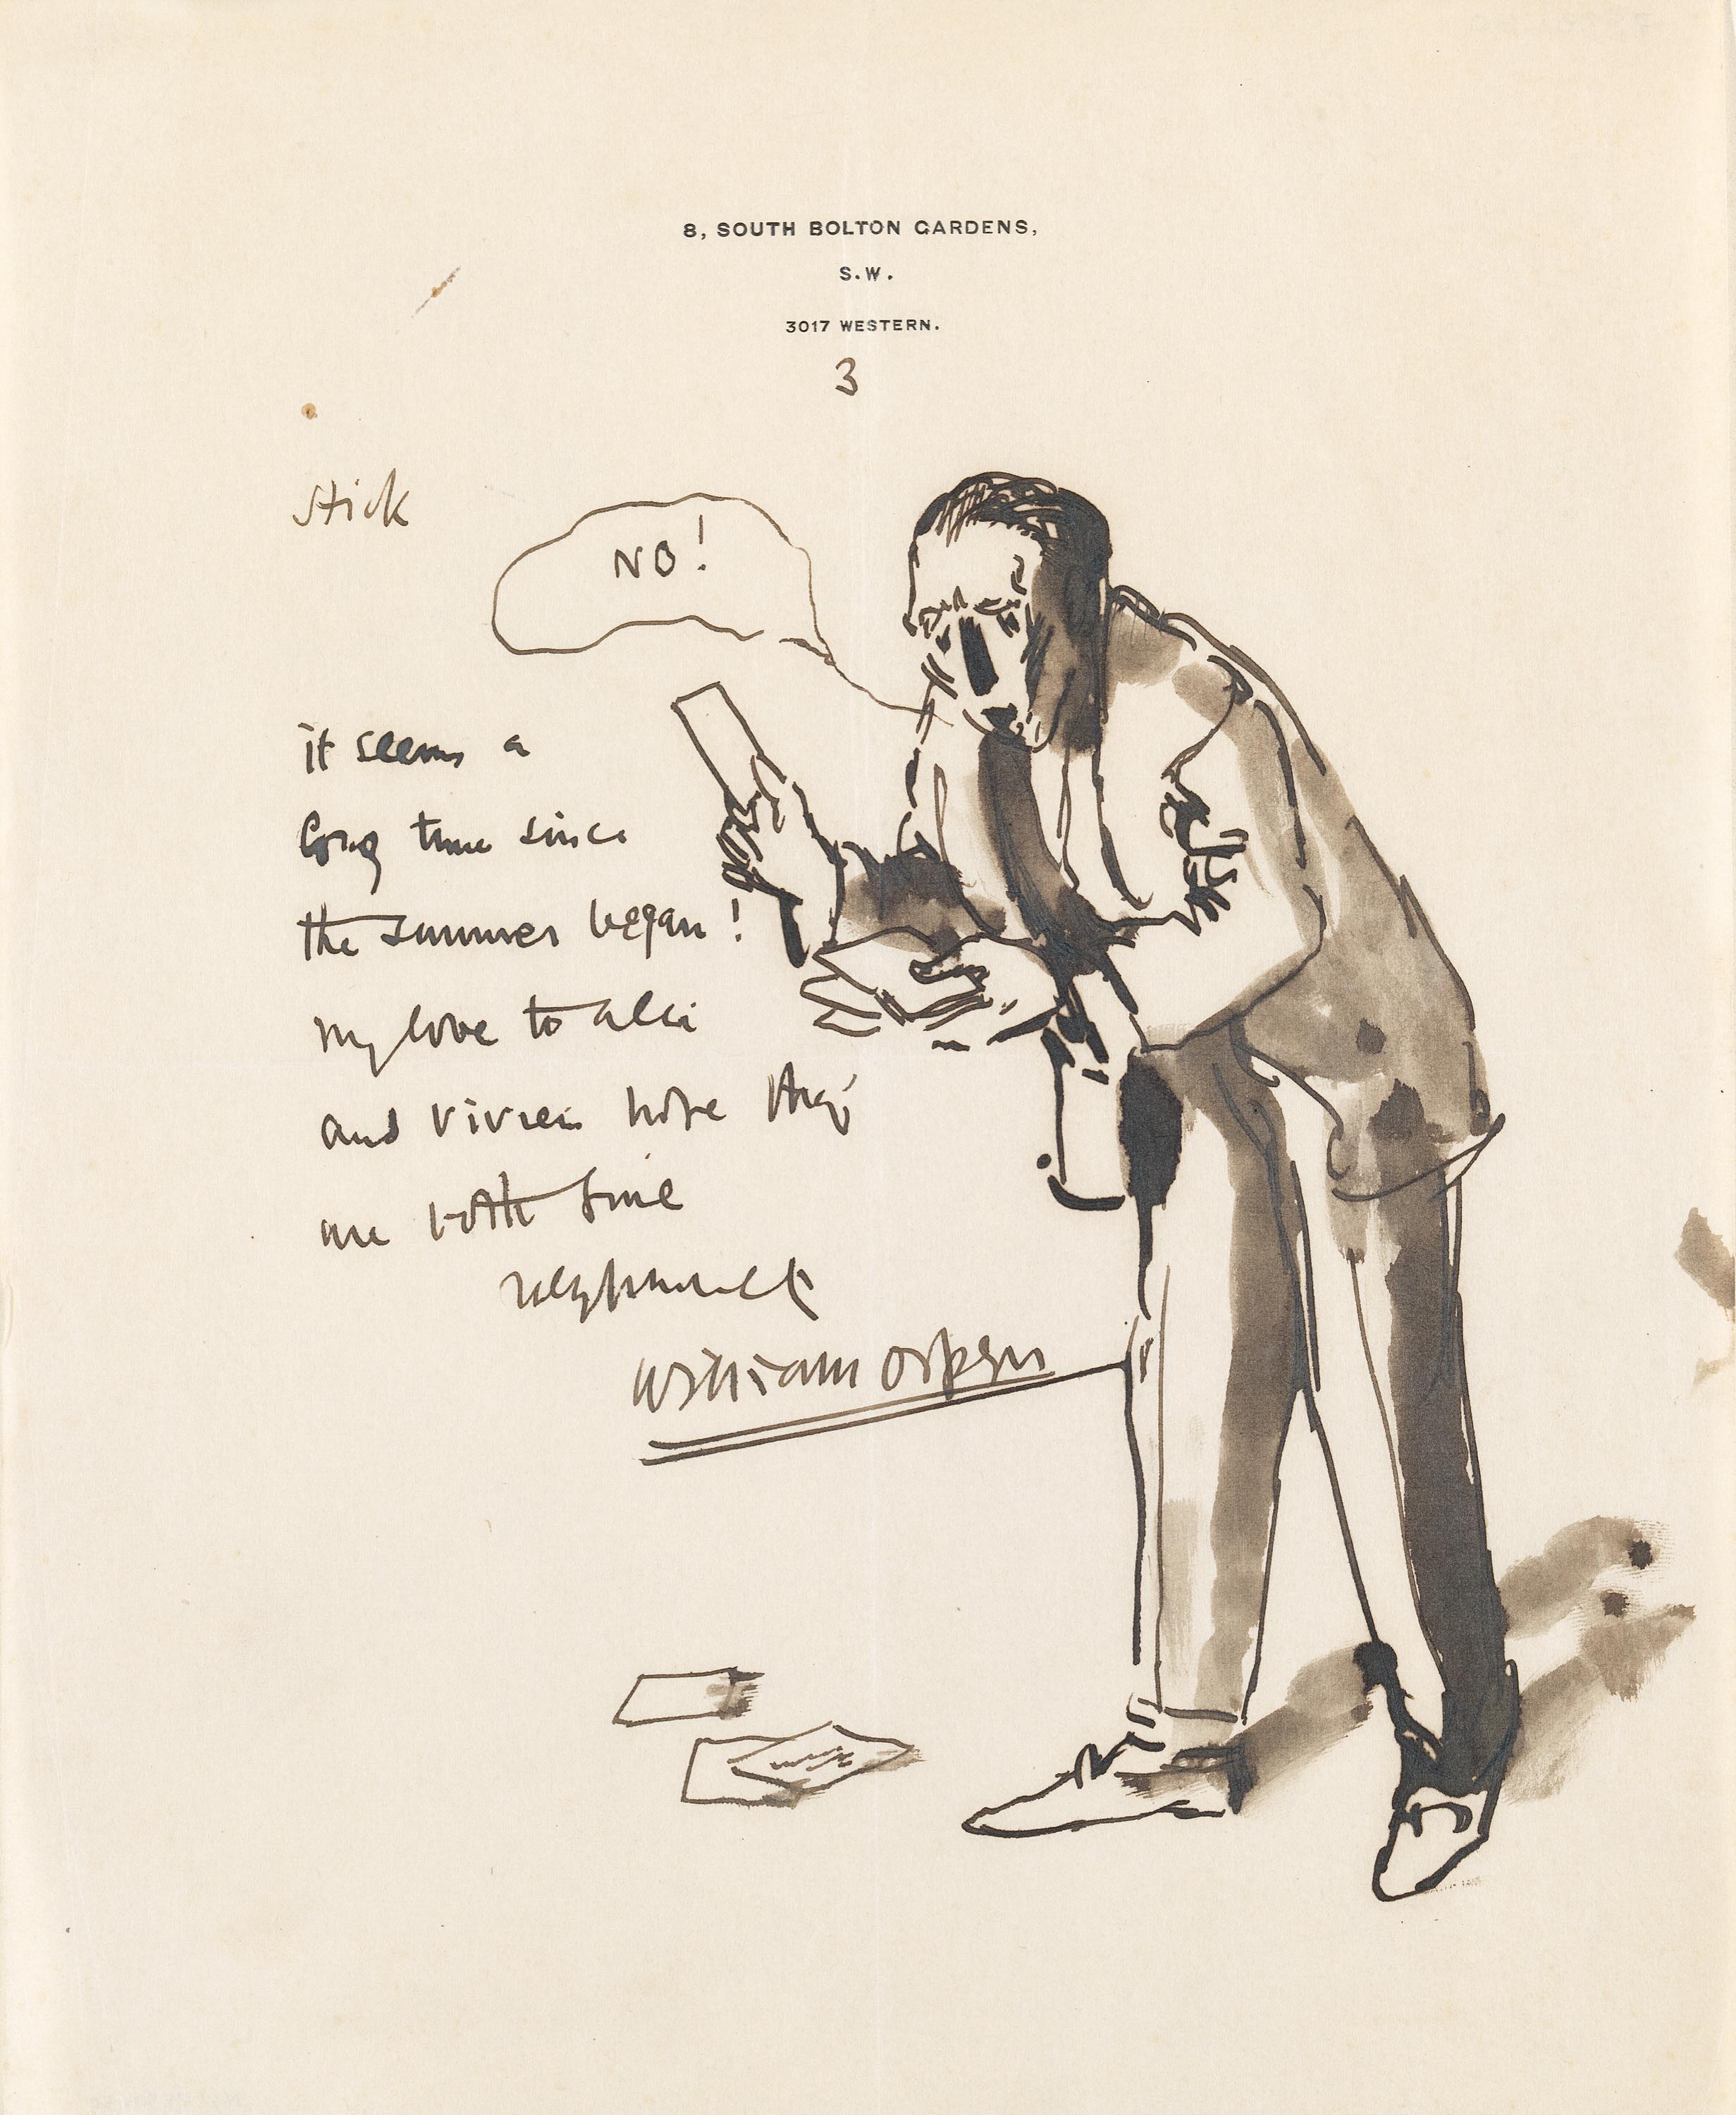 8, SOUTH BOLTON GARDENS,
S.W.
3017 WESTERN.
3
stick
NO!
it seems a
long time since
the summer began!
my love to
and Vivien hope they
are both fine
William Orpen